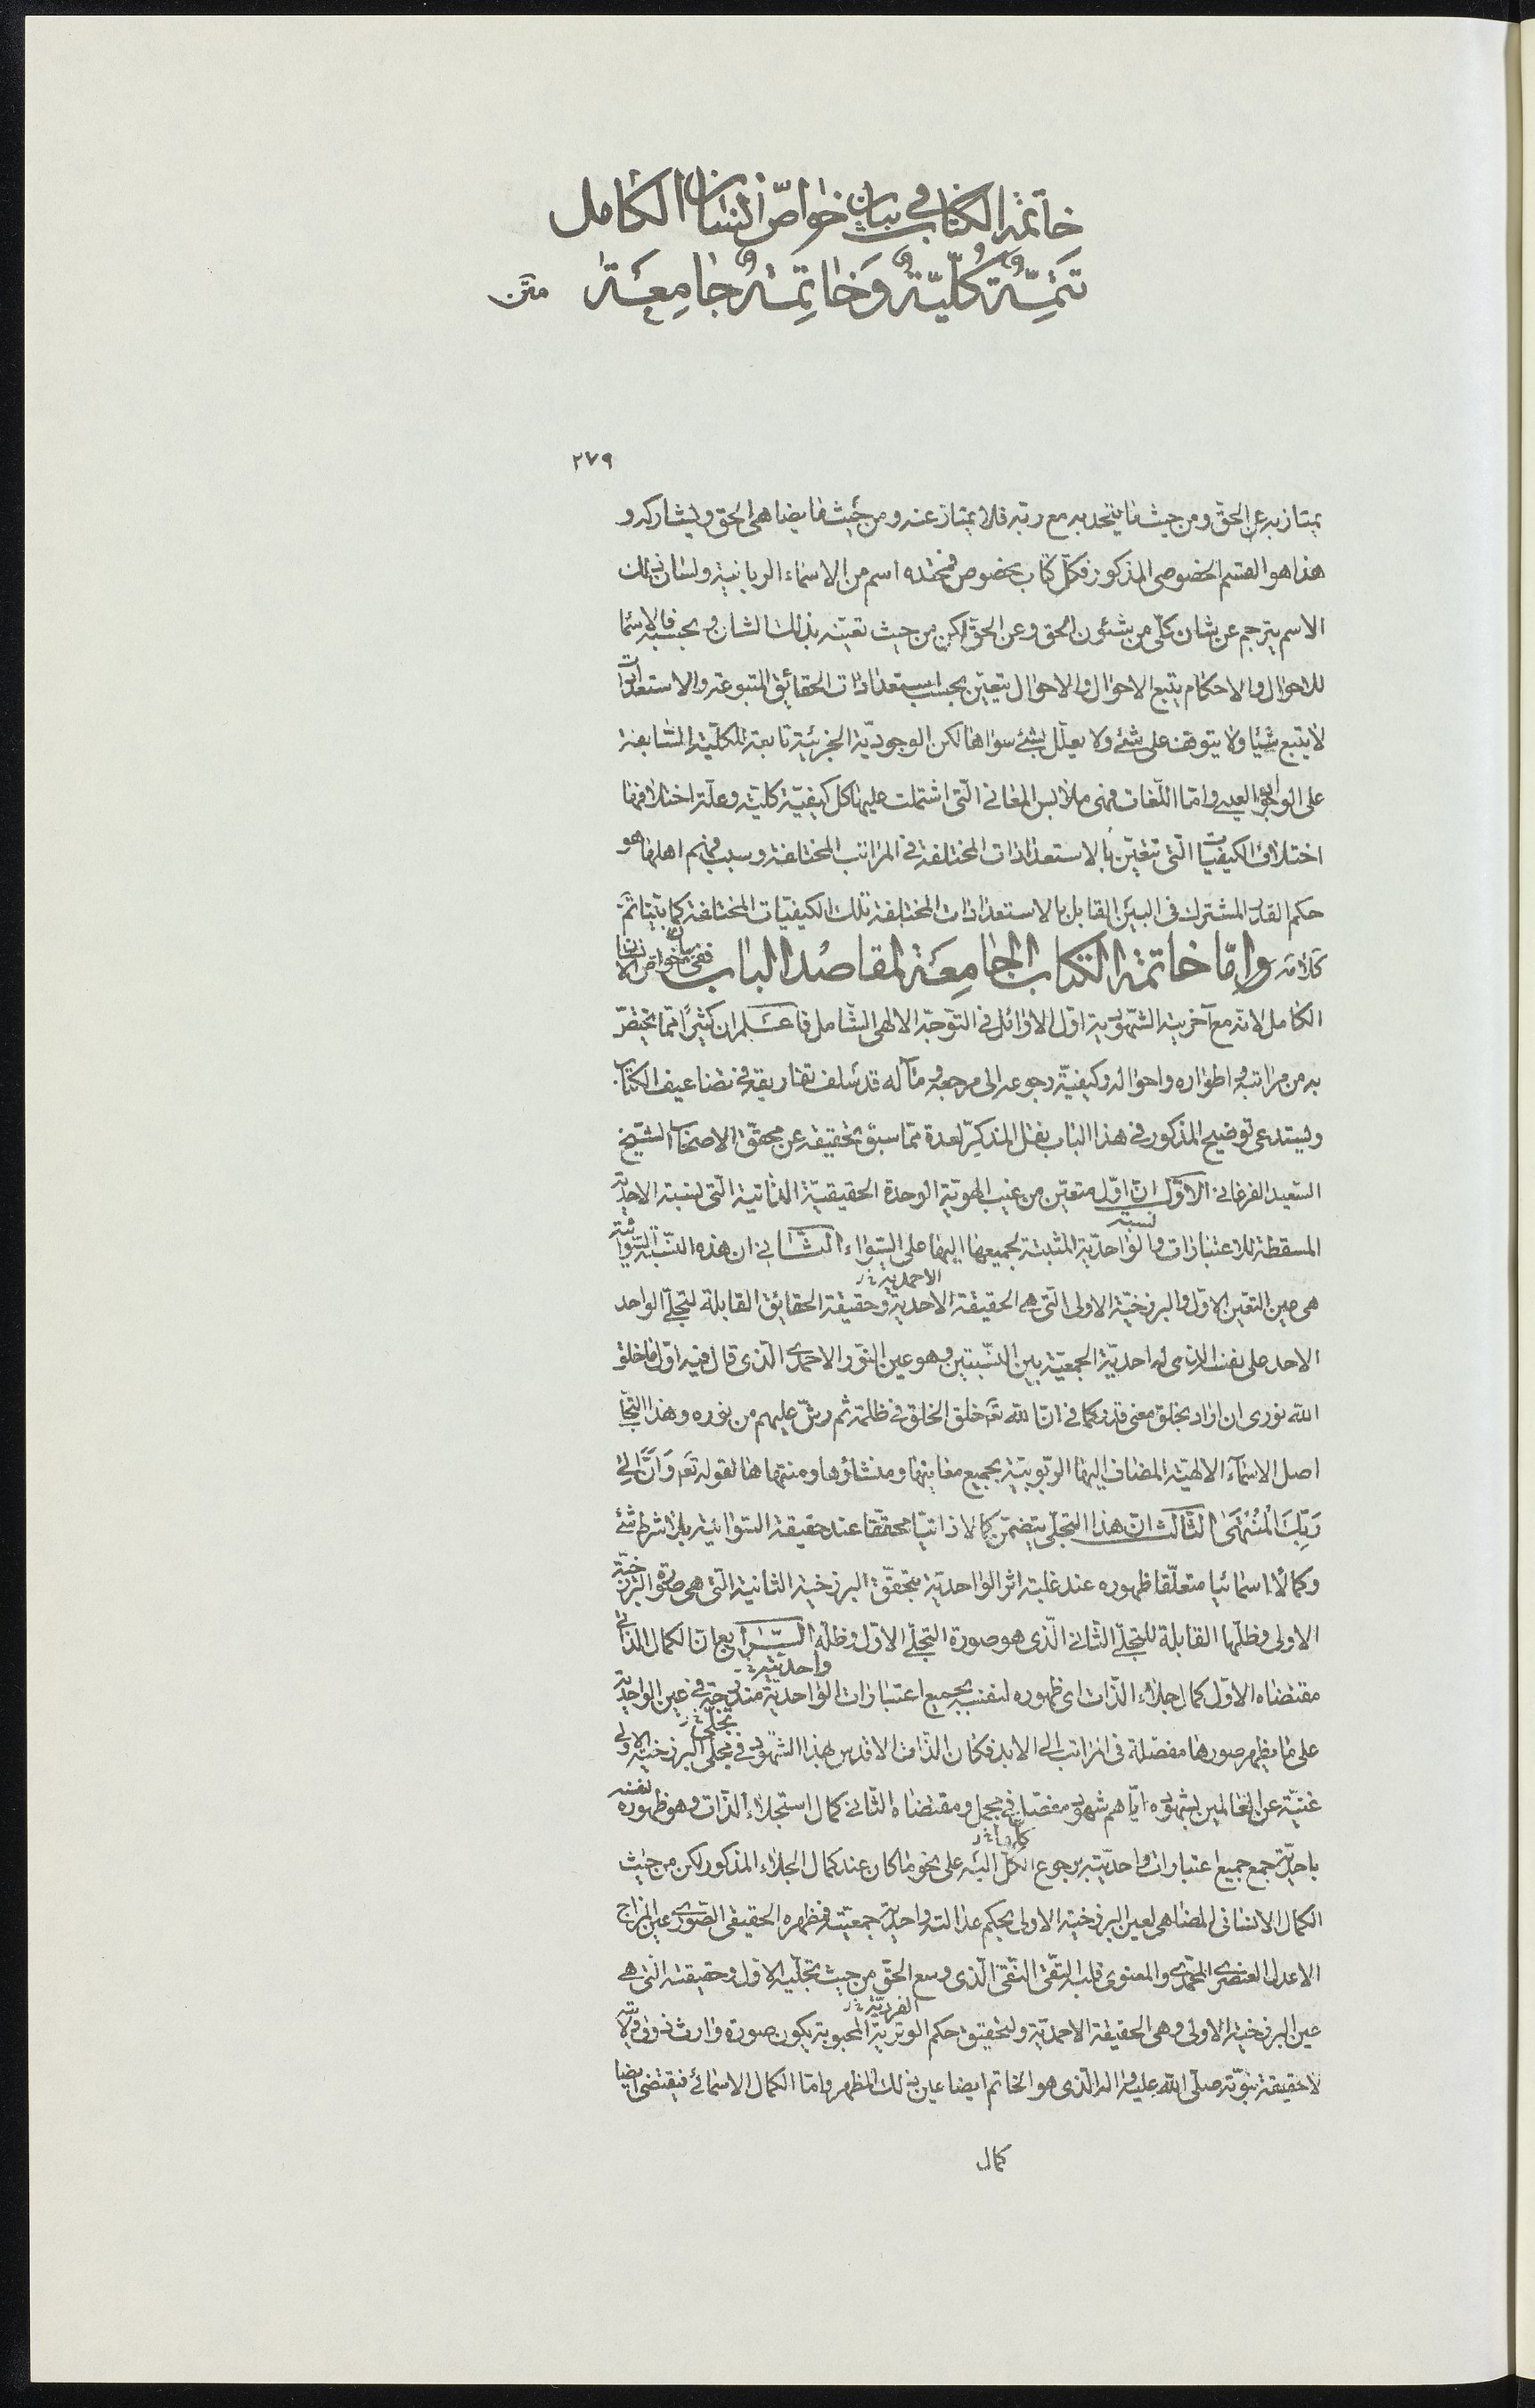 خاتمة الكتاب في بيان خواص الانسان الكامل
تَتِمَّةٌ كُلّيّةٌ وَخاتِمَةٌ جامِعَةٌ متن
٢٧٩
يمتاز به عن الحق ومن حيث ما يتحد به مع ربه فلا يمتاز عنه ومن حيث ما يضاهى الحق ويشاركه و
هذا هو القسم الخصوصى المذكور فكل كتاب مخصوص فمحتده اسم من الاسماء الربانية ولسان ذلك
الاسم يترجم عن شان كلّى من شئون الحق وعن الحق لكن من حيث تعيّنه بذلك الشان وبحسبه فالاسما
للاحوال والاحكام يتبع الاحوال والاحوال يتعيّن بحسب استعدادات الحقائق المتبوعة والاستعدادات
لا يتبع شيئا ولا يتوقف على شئ ولا يعلّل بشئ سواها لكن الوجوديّة الجزئية تابعة للكليّة السابقة
على الوجود العينى وامّا اللّغات فهى ملابس المعانى الّتى اشتملت عليها كل كيفيّة كليّة وعلّة اختلافها
اختلاف الكيفيات الّتى تتعيّن بالاستعدادات المختلفة فى المراتب المختلفة وسبب فهم اهلها هو
حكم القدر المشترك فى البين القابل بالاستعدادات المختلفة تلك الكيفيّات المختلفة كما بيّنا تمّ
كلامه وامّا خاتمة الكتاب الجامِعَة لمقاصد الباب ففى بيان خواص الانسان
الكامل لانه مع آخرية الشّهوديّة اوّل الاوائل فى التوجّه الالهى الشّامل فاعلم ان كثيرًا ممّا يختصّ
به من مراتبه واطواره واحواله وكيفيّة رجوعه الى مرجعه ومآله قد سلف تفاريقه فى تضاعيف الكتاب
ويستدعى توضيح المذكور فى هذا الباب نقل المذكّر لعدة ممّا سبق تحقيقه عن محقّق الاصحاب الشّيخ
السّعيد الفرغانى الاوّل انّ اوّل متعيّن من غيب الهويّة الوحدة الحقيقيّة الذاتية الّتى نسبة الاحديّة
نسبة
المسقطة للاعتبارات والواحديّة المثبتة لجميعها اليها على السّواء الثّانى ان هذه النّسبة السّوائيّة
الاحمديّة خ ر
هى عين التعيّن الاوّل والبرزخيّة الاولى الّتى هى الحقيقة الاحديّة وحقيقة الحقائق القابلة لتجلّى الواحد
الاحد على نفسه الذى له احديّة الجمعيّة بين النّسبتين وهو عين النّور الاحمدى الّذى قال فيه اوّل ما خلق
الله نورى ان اراد بخلق معنى قدر كما فى انّ الله تعَ خلق الخلق فى ظلمة ثم رشّ عليهم من نوره وهذا التجلّى
اصل الاسمآء الالهيّة المضاف اليها الربّوبيّة بجميع معانيها ومنشاؤها ومنتهاها لقوله تعَ وَاَنَّ اِلى
رَبِّكَ المُنْتَهى الثّالث انّ هذا التجلّى يتضمّن كمالا ذاتيّا محقّقا عند حقيقة السّوائية بلا شرط شئ
وكمالًا اسمائيا متعلّقا ظهوره عند غلبة اثر الواحديّة بتحقّق البرزخية الثانية الّتى هى صورة البرزخيّة
الاولى وظلّها القابلة للتجلّى الثّانى الّذى هو صورة التجلّى الاوّل وظلّه الرّابع انّ الكمال الذاتى
واحديّته خ ر
مقتضاه الاوّل كمال جلاء الذّات اى ظهوره لنفسه بجميع اعتبارات الواحديّة مندرجة فى عين الواحديّة
تجلّى خ ر
على ما يظهر صورها مفصّلة فى المراتب الى الابد فكان الذّات الاقدس بهذا الشّهود فى مجلى البرزخيّة الاولى
غنيّة عن العالمين بشهوده ايّاهم شهود مفصّل فى مجمل ومقتضاه الثّانى كمال استجلاء الذّات وهو ظهوره لنفسه
باحديّة جمع جميع اعتبارات واحديّته برجوع الكلّ اليه على نحو ما كان عند كمال الجلاء المذكور لكن من حيث
الكمال الانسانى المضاهى لعين البرزخيّة الاولى بحكم عدالته واحديّة جمعيّته فمظهره الحقيقى الصّورى عين المزاج
الاعدل العنصرى المحمّدى والمعنوى قلبه التّقى النّقى الّذى وسع الحقّ من حيث تجلّيه الاوّل وحقيقته الّتى هى
الفرديّة خ ر
عين البرزخيّة الاولى وهى الحقيقة الاحمديّة ولتحقيق حكم الوتريّة المحبوبة يكون صورة وارث
لا حقيقة نبوّته صلّى الله عليه واله الّذى هو الخاتم ايضا عين ذلك المظهر وامّا الكمال الاسمائى فيقتضى ايضا
كمال